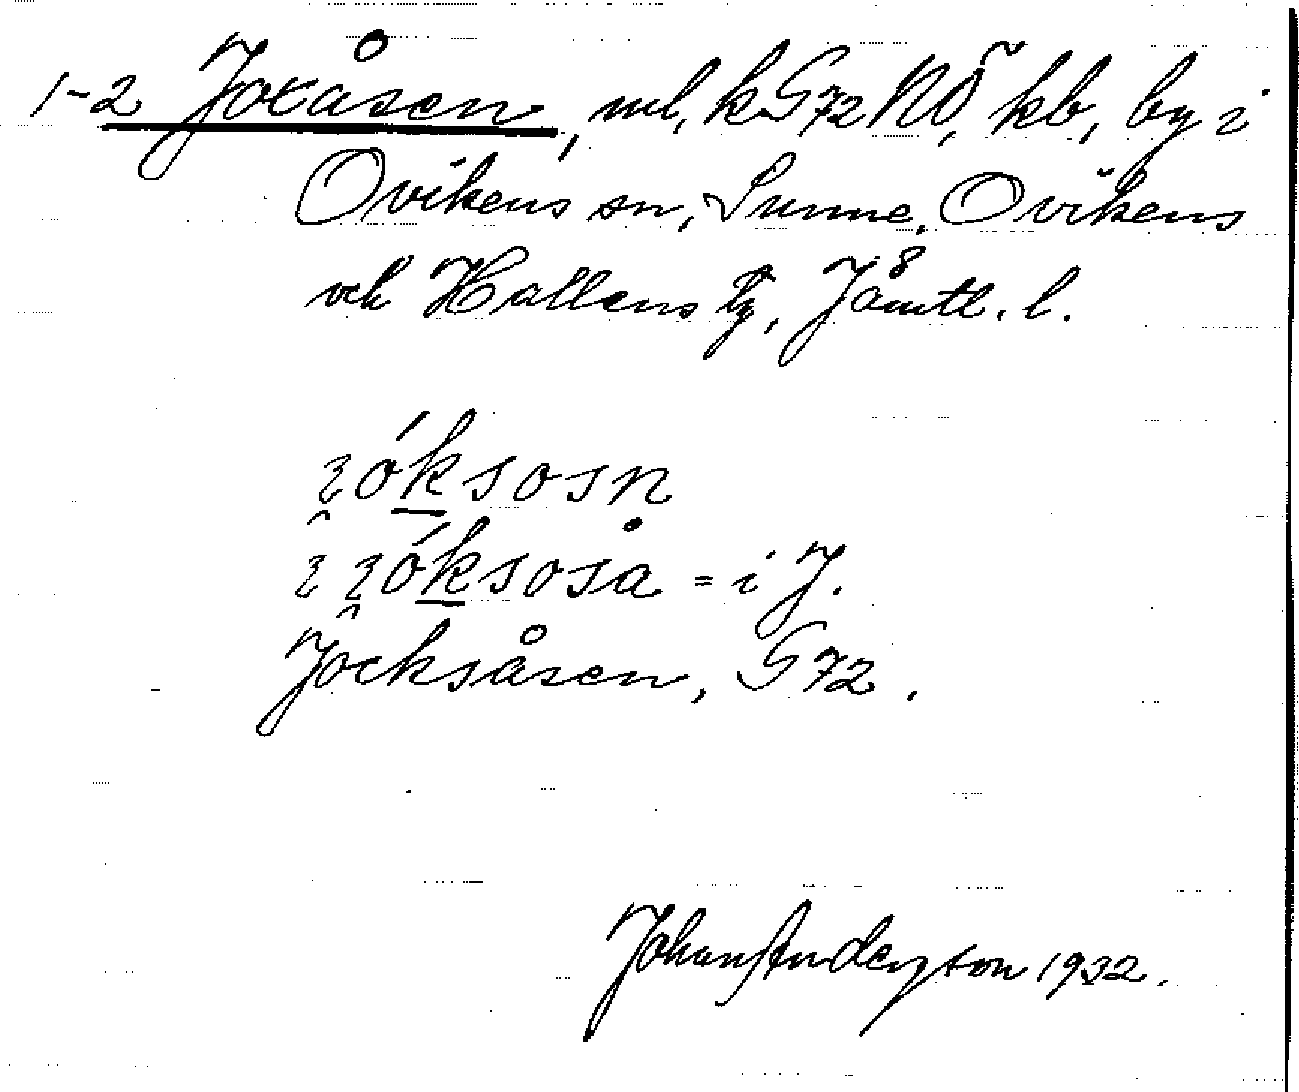 1-2 Joxåsen, ml, k G72 NÖ, kb, by i
Ovikens sn, Sunne, Ovikens
och Hallens tg, Jämtl. l.
ɩóksosn
ɩ ɩóksoså = i J.
Jocksåsen, G72.
Johan Anderzson 1932.